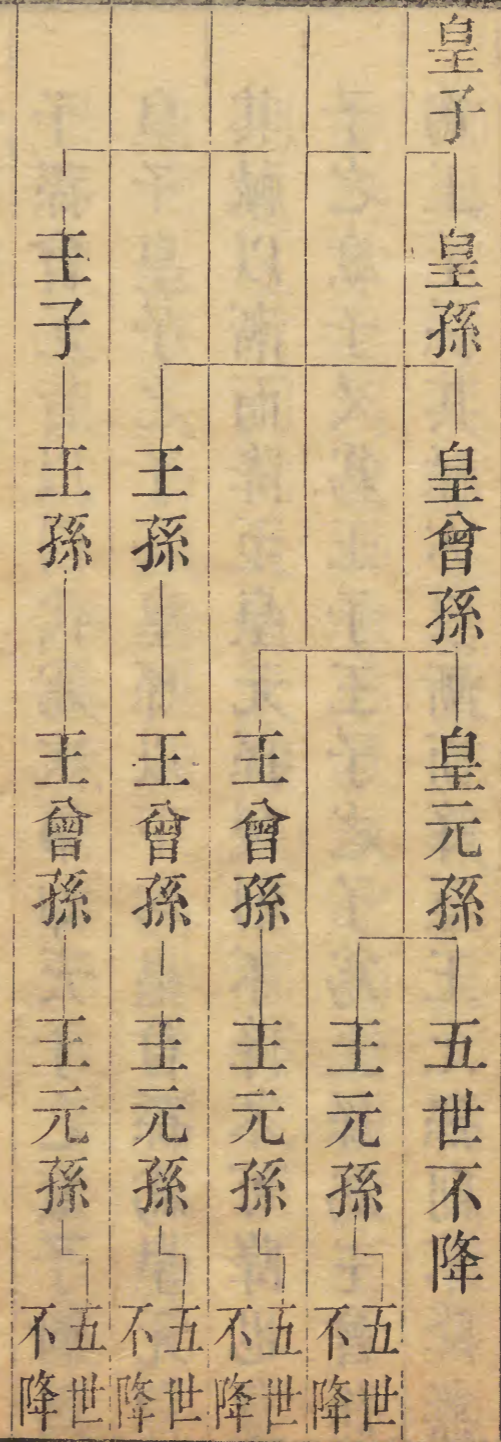 皇子 皇孫 皇曾孫 皇元孫 五世不降
王元孫 五世不降
王曾孫 王元孫 五世不降
王孫 王曾孫 王元孫 五世不降
王子 王孫 王曾孫 王元孫 五世不降